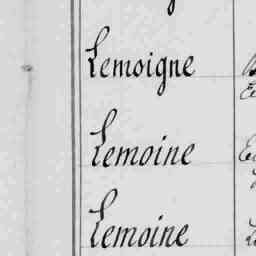 Lemoigne
Lemoine
Lemoine